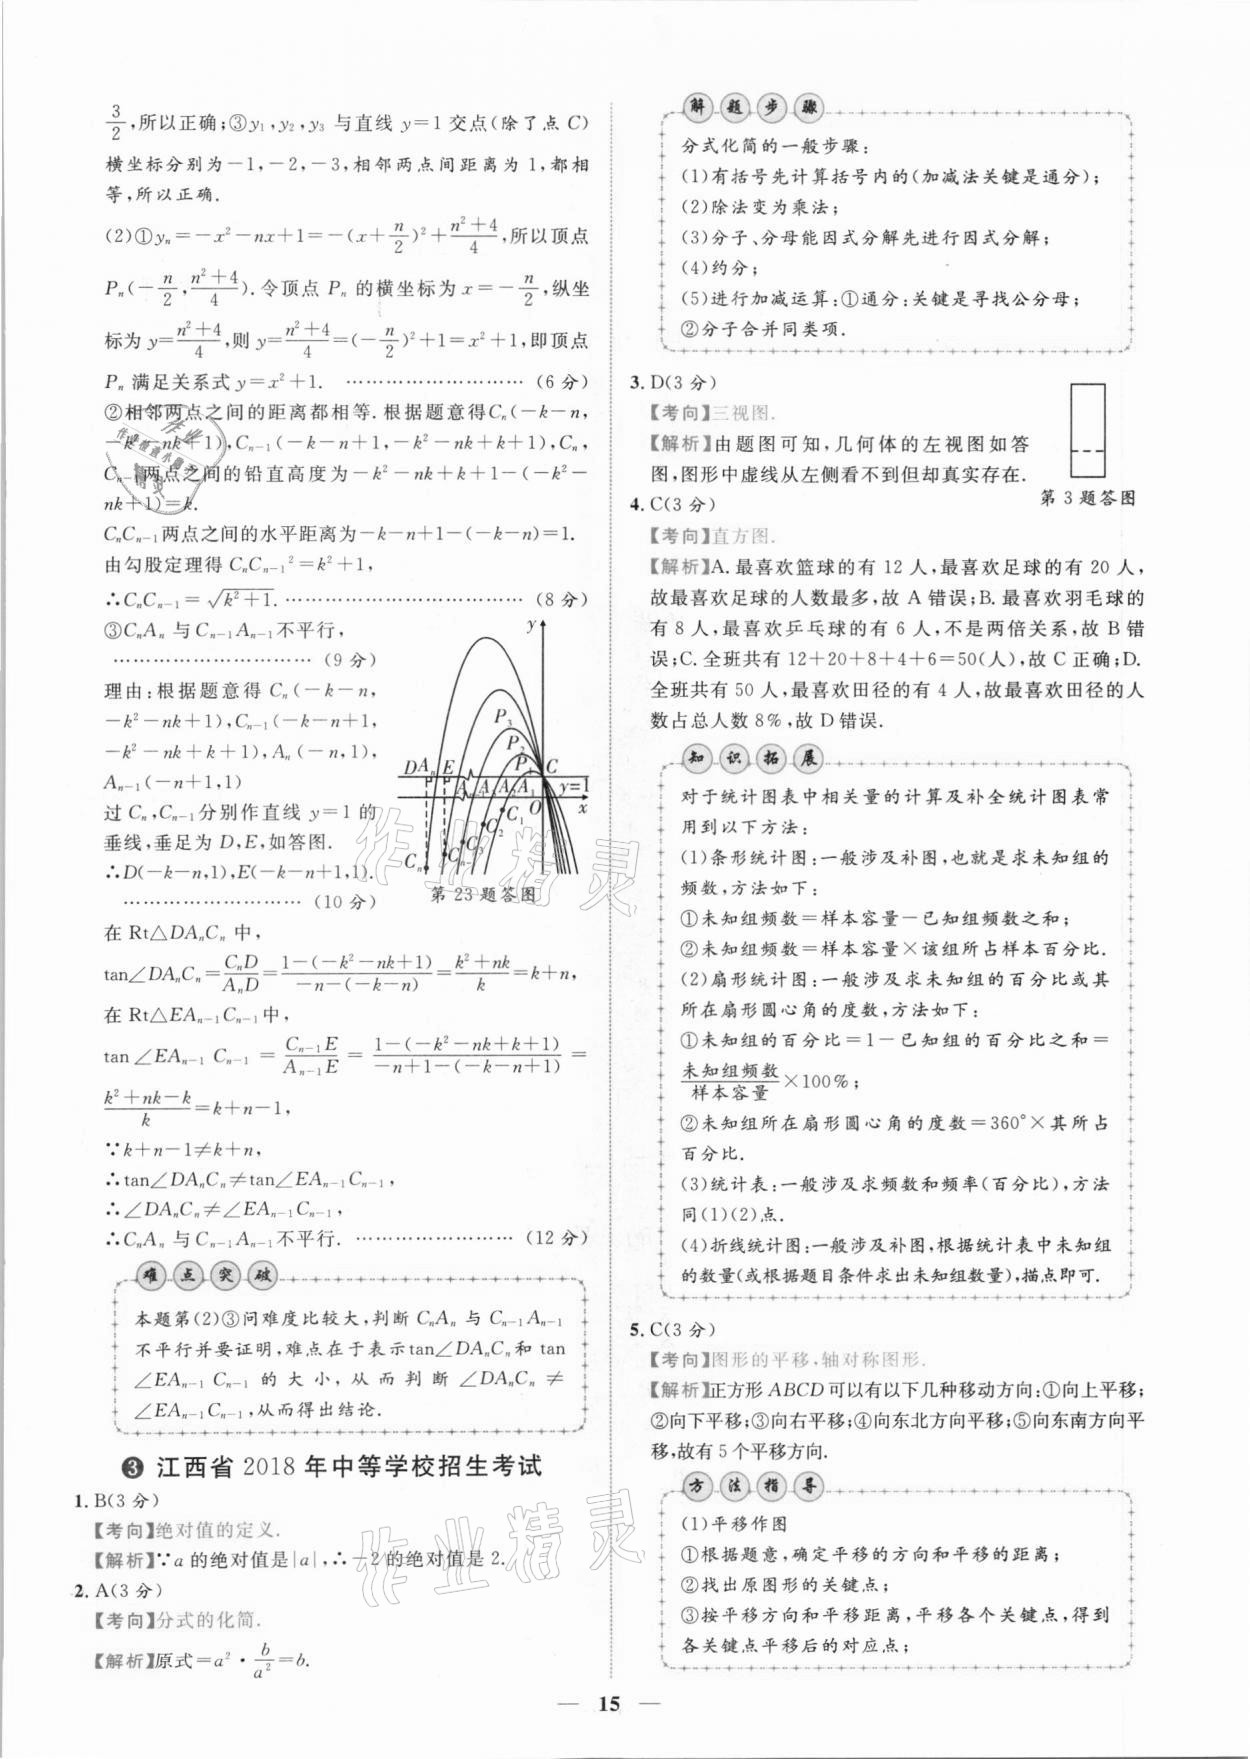 3/2,所以正确;③y₁,y₂,y₃ 与直线 y=1 交点(除了点 C)
横坐标分别为-1,-2,-3,相邻两点间距离为 1,都相
等,所以正确.
(2)①yₙ=-x²-nx+1=-(x+n/2)²+(n²+4)/4,所以顶点
Pₙ(-n/2,(n²+4)/4).令顶点 Pₙ 的横坐标为 x=-n/2,纵坐
标为 y=(n²+4)/4,则 y=(n²+4)/4=(-n/2)²+1=x²+1,即顶点
Pₙ 满足关系式 y=x²+1. ………………………… (6 分)
②相邻两点之间的距离都相等.根据题意得Cₙ(-k-n,
-k²-nk+1),Cₙ₋₁(-k-n+1,-k²-nk+k+1),Cₙ,
Cₙ₋₁两点之间的铅直高度为-k²-nk+k+1-(-k²-
nk+1)=k.
CₙCₙ₋₁两点之间的水平距离为-k-n+1-(-k-n)=1.
由勾股定理得 CₙCₙ₋₁²=k²+1,
∴CₙCₙ₋₁=√(k²+1). ………………………………… (8 分)
③CₙAₙ 与 Cₙ₋₁Aₙ₋₁不平行,
………………………… (9 分)
理由:根据题意得 Cₙ(-k-n,
-k²-nk+1),Cₙ₋₁(-k-n+1,
-k²-nk+k+1),Aₙ(-n,1),
Aₙ₋₁(-n+1,1)
过 Cₙ,Cₙ₋₁分别作直线 y=1 的
垂线,垂足为 D,E,如答图.
∴D(-k-n,1),E(-k-n+1,1).
………………………… (10 分)
y
P₃
P₂
P₁
D Aₙ E C
Aₙ₋₁ A₃ A₂ A₁ y=1
O x
C₁
C₂
C₃
Cₙ₋₁
Cₙ
第 23 题答图
在 Rt△DAₙCₙ 中,
tan∠DAₙCₙ=CₙD/AₙD=(1-(-k²-nk+1))/(-n-(-k-n))=(k²+nk)/k=k+n,
在 Rt△EAₙ₋₁Cₙ₋₁中,
tan ∠EAₙ₋₁ Cₙ₋₁ = Cₙ₋₁E/Aₙ₋₁E = (1-(-k²-nk+k+1))/(-n+1-(-k-n+1)) =
(k²+nk-k)/k=k+n-1,
∵k+n-1≠k+n,
∴tan∠DAₙCₙ≠tan∠EAₙ₋₁Cₙ₋₁,
∴∠DAₙCₙ≠∠EAₙ₋₁Cₙ₋₁,
∴CₙAₙ 与 Cₙ₋₁Aₙ₋₁不平行. …………………… (12 分)
难点突破
本题第(2)③问难度比较大,判断 CₙAₙ 与 Cₙ₋₁Aₙ₋₁
不平行并要证明,难点在于表示tan∠DAₙCₙ和 tan
∠EAₙ₋₁ Cₙ₋₁ 的大小,从而判断∠DAₙCₙ ≠
∠EAₙ₋₁Cₙ₋₁,从而得出结论.
❸ 江西省 2018 年中等学校招生考试
1. B(3 分)
【考向】绝对值的定义.
【解析】∵a 的绝对值是|a|,∴-2的绝对值是 2.
2. A(3 分)
【考向】分式的化简.
【解析】原式=a²·b/a²=b.
解题步骤
分式化简的一般步骤:
(1)有括号先计算括号内的(加减法关键是通分);
(2)除法变为乘法;
(3)分子、分母能因式分解先进行因式分解;
(4)约分;
(5)进行加减运算:①通分:关键是寻找公分母;
②分子合并同类项.
3. D(3 分)
【考向】三视图.
【解析】由题图可知,几何体的左视图如答
图,图形中虚线从左侧看不到但却真实存在.
第 3 题答图
4. C(3 分)
【考向】直方图.
【解析】A.最喜欢篮球的有 12 人,最喜欢足球的有 20 人,
故最喜欢足球的人数最多,故 A 错误;B.最喜欢羽毛球的
有 8 人,最喜欢乒乓球的有 6 人,不是两倍关系,故 B 错
误;C.全班共有 12+20+8+4+6=50(人),故 C 正确;D.
全班共有 50 人,最喜欢田径的有 4 人,故最喜欢田径的人
数占总人数 8%,故 D 错误.
知识拓展
对于统计图表中相关量的计算及补全统计图表常
用到以下方法:
(1)条形统计图:一般涉及补图,也就是求未知组的
频数,方法如下:
①未知组频数=样本容量-已知组频数之和;
②未知组频数=样本容量×该组所占样本百分比.
(2)扇形统计图:一般涉及求未知组的百分比或其
所在扇形圆心角的度数,方法如下:
①未知组的百分比=1-已知组的百分比之和=
未知组频数/样本容量×100%;
②未知组所在扇形圆心角的度数=360°×其所占
百分比.
(3)统计表:一般涉及求频数和频率(百分比),方法
同(1)(2)点.
(4)折线统计图:一般涉及补图,根据统计表中未知组
的数量(或根据题目条件求出未知组数量),描点即可.
5. C(3 分)
【考向】图形的平移,轴对称图形.
【解析】正方形 ABCD 可以有以下几种移动方向:①向上平移;
②向下平移;③向右平移;④向东北方向平移;⑤向东南方向平
移,故有 5 个平移方向.
方法指导
(1)平移作图
①根据题意,确定平移的方向和平移的距离;
②找出原图形的关键点;
③按平移方向和平移距离,平移各个关键点,得到
各关键点平移后的对应点;
作业精灵
作业精灵
— 15 —